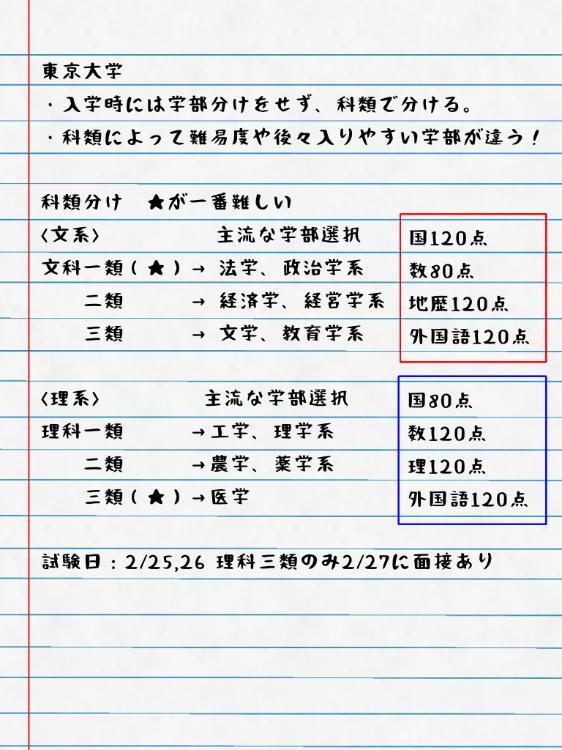 東京大学
・入学時には学部分けをせず、科類で分ける。
・科類によって難易度や後々入りやすい学部が違う！
科類分け　★が一番難しい
〈文系〉　主流な学部選択　国120点
文科一類(★)→ 法学、政治学系　数80点
二類　→ 経済学、経営学系　地歴120点
三類　→ 文学、教育学系　外国語120点
〈理系〉　主流な学部選択　国80点
理科一類　→工学、理学系　数120点
二類　→農学、薬学系　理120点
三類(★)→医学　外国語120点
試験日：2/25,26 理科三類のみ2/27に面接あり